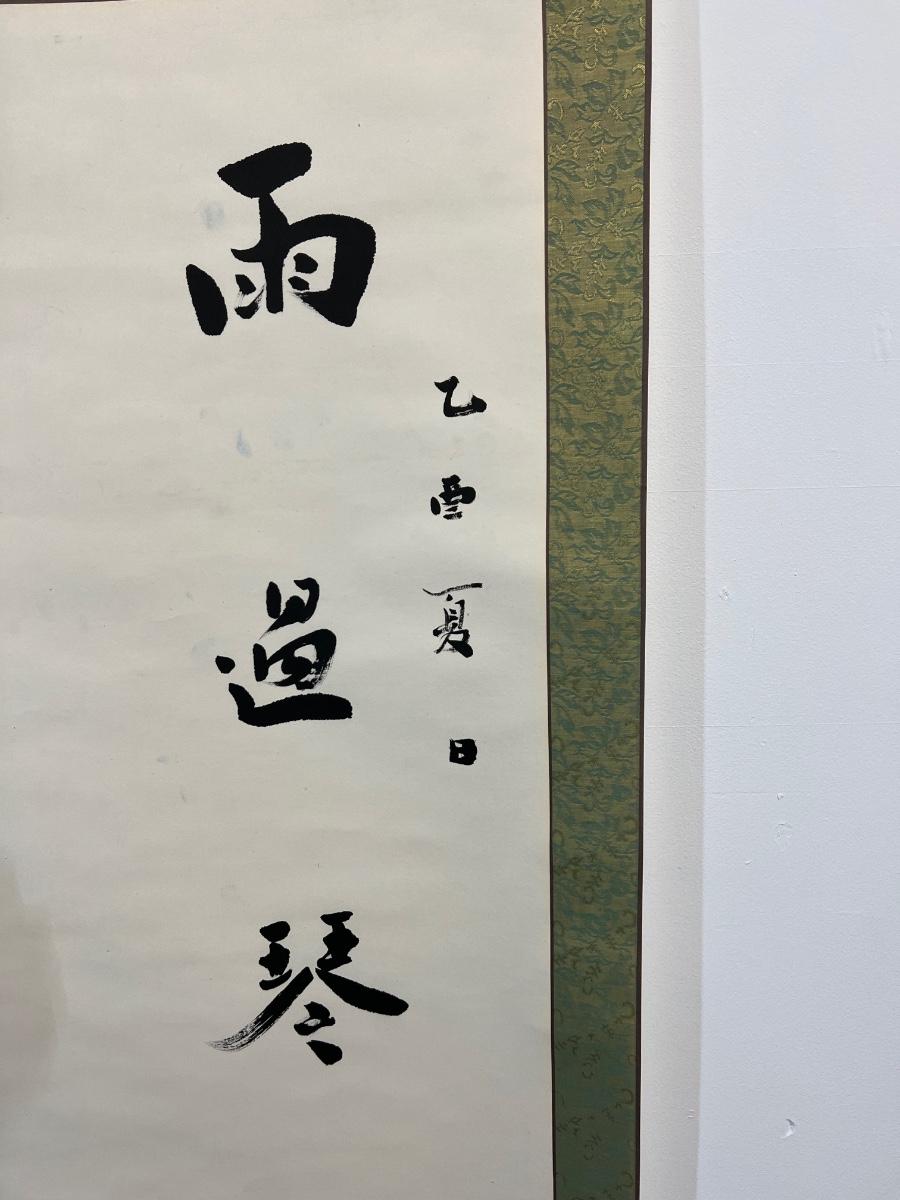 乙酉夏日
雨過琴